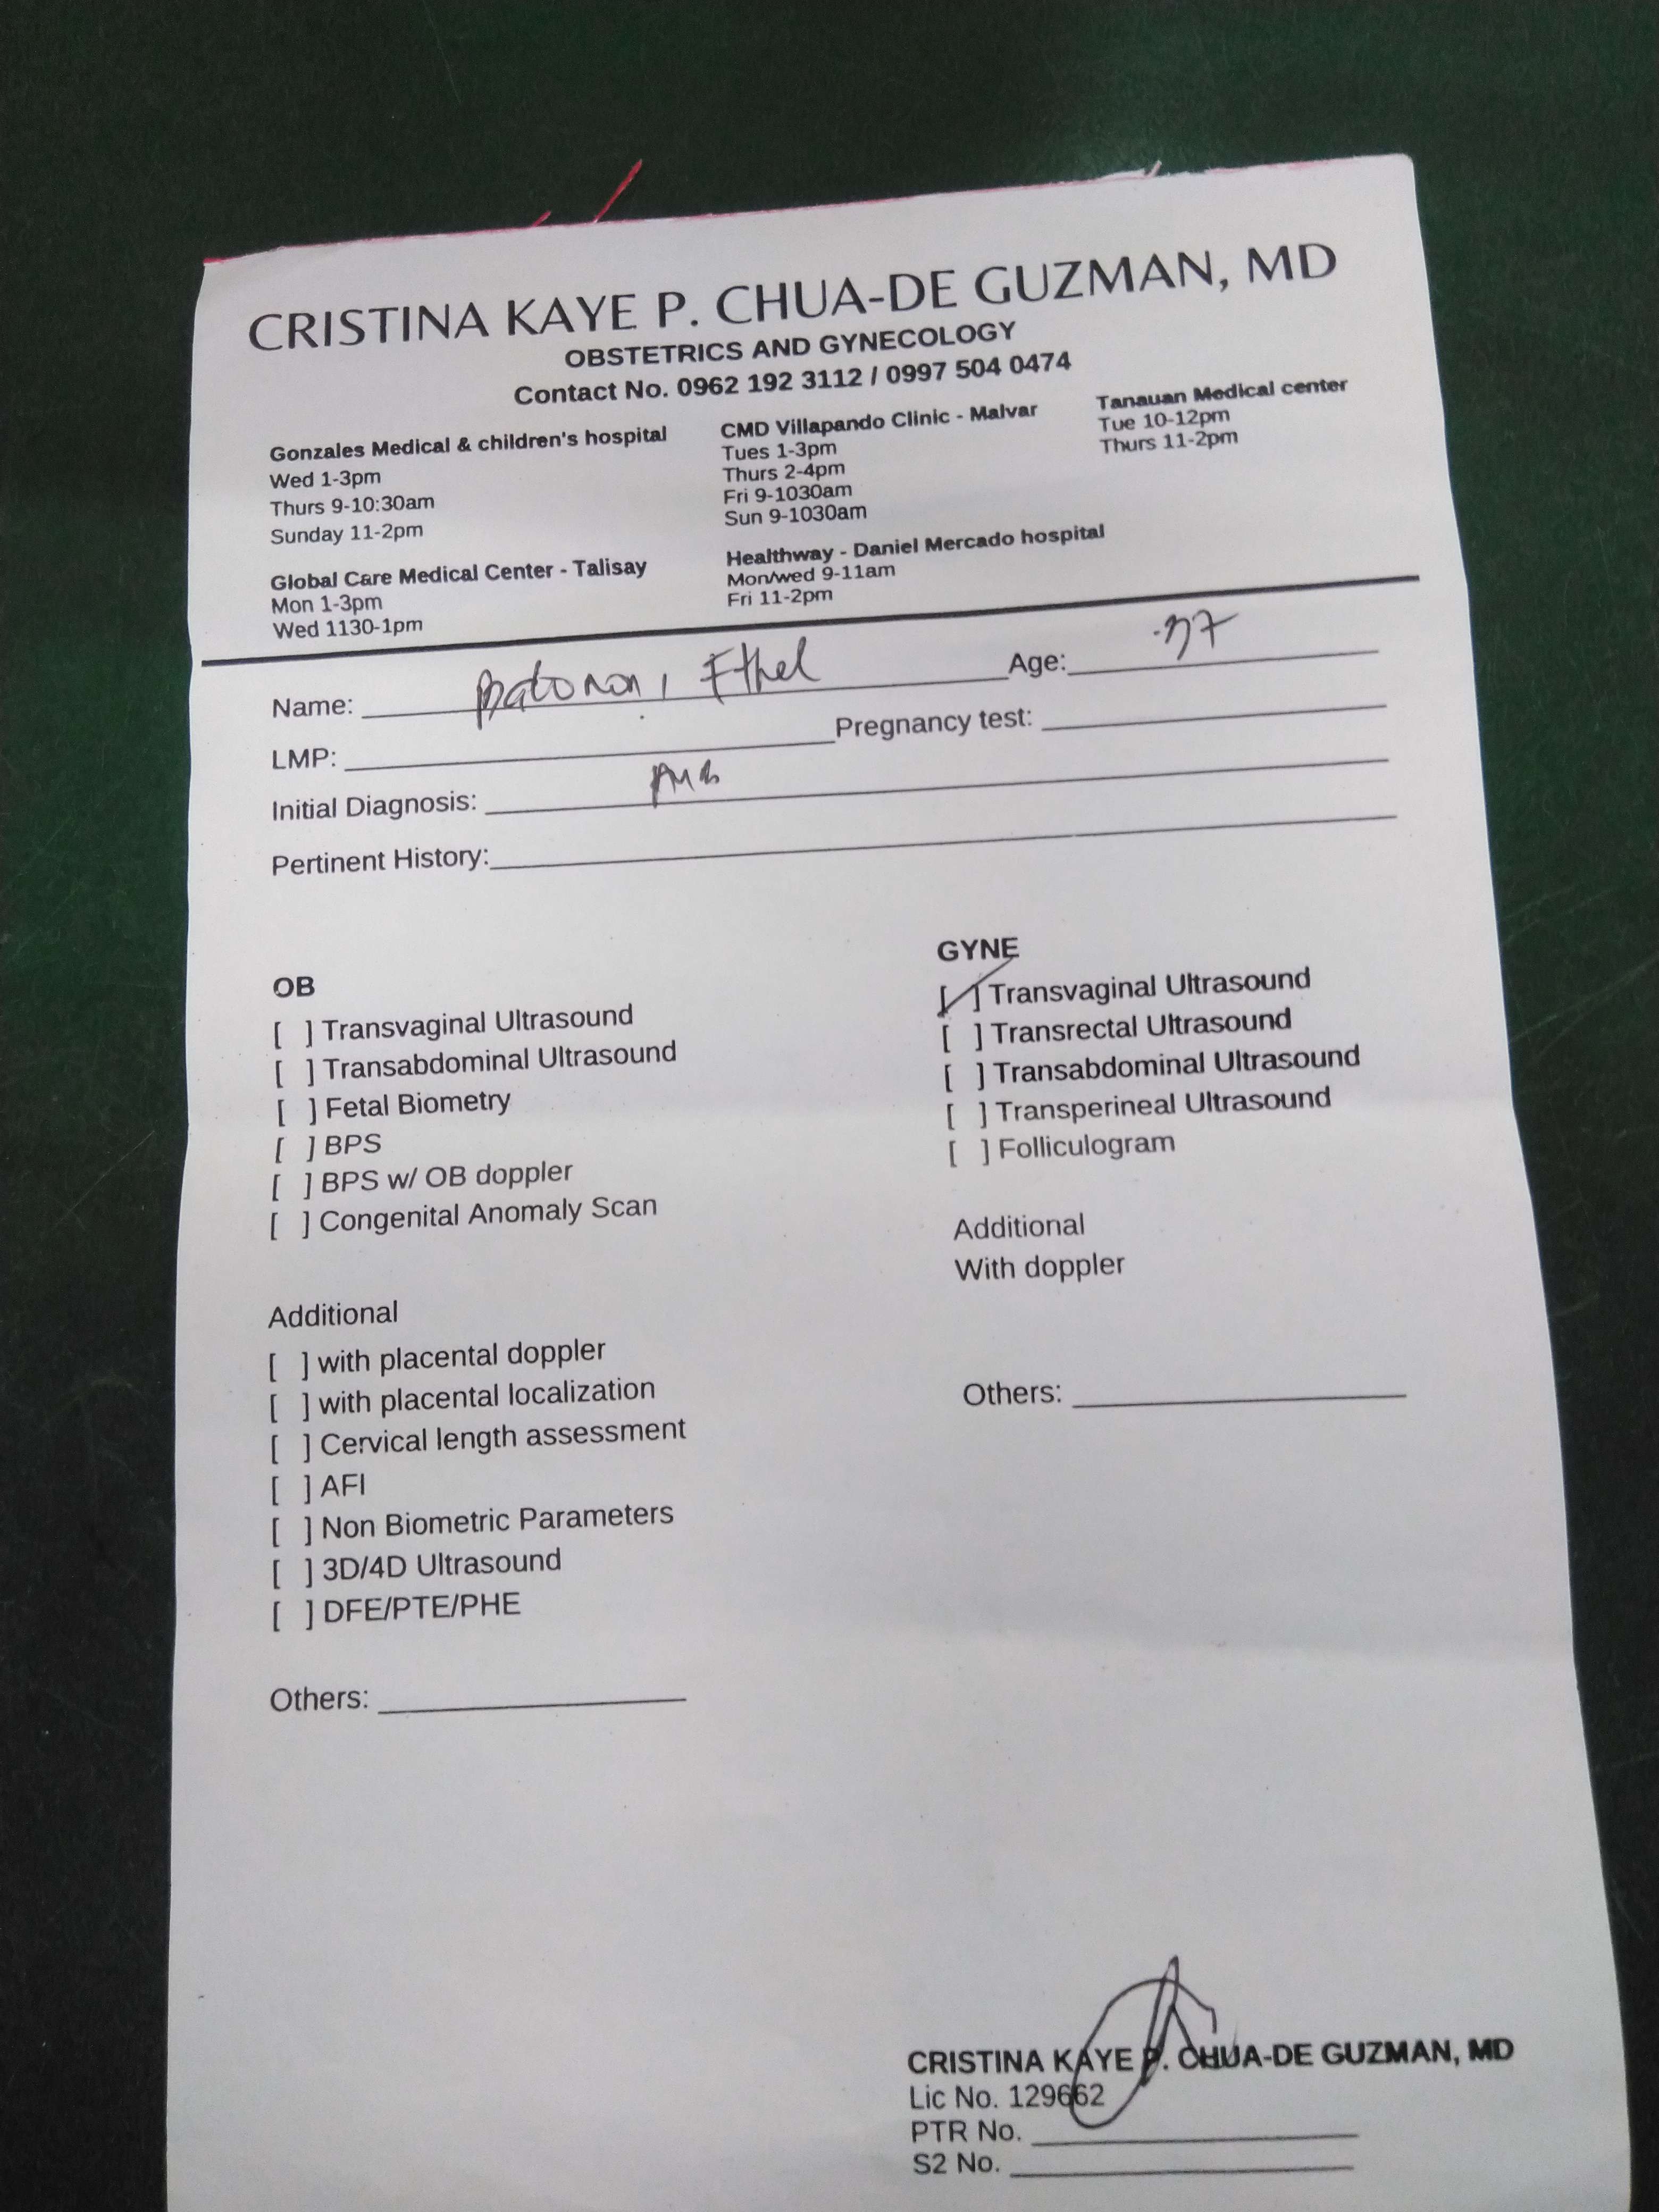 CRISTINA KAYE P. CHUA-DE GUZMAN, MD
OBSTETRICS AND GYNECOLOGY
Contact No. 0962 192 3112 / 0997 504 0474
Gonzales Medical & children's hospital
Wed 1-3pm
Thurs 9-10:30am
Sunday 11-2pm
CMD Villapando Clinic - Malvar
Tues 1-3pm
Thurs 2-4pm
Fri 9-1030am
Sun 9-1030am
Tanauan Medical center
Tue 10-12pm
Thurs 11-2pm
Global Care Medical Center - Talisay
Mon 1-3pm
Wed 1130-1pm
Healthway - Daniel Mercado hospital
Mon/wed 9-11am
Fri 11-2pm
Name: Ethel Age:
LMP: Pregnancy test:
Initial Diagnosis: AUB
Pertinent History:
OB
[ ] Transvaginal Ultrasound
[ ] Transabdominal Ultrasound
[ ] Fetal Biometry
[ ] BPS
[ ] BPS w/ OB doppler
[ ] Congenital Anomaly Scan
Additional
[ ] with placental doppler
[ ] with placental localization
[ ] Cervical length assessment
[ ] AFI
[ ] Non Biometric Parameters
[ ] 3D/4D Ultrasound
[ ] DFE/PTE/PHE
Others:
GYNE
[✓] Transvaginal Ultrasound
[ ] Transrectal Ultrasound
[ ] Transabdominal Ultrasound
[ ] Transperineal Ultrasound
[ ] Folliculogram
Additional
With doppler
Others:
CRISTINA KAYE P. CHUA-DE GUZMAN, MD
Lic No. 129662
PTR No.
S2 No.